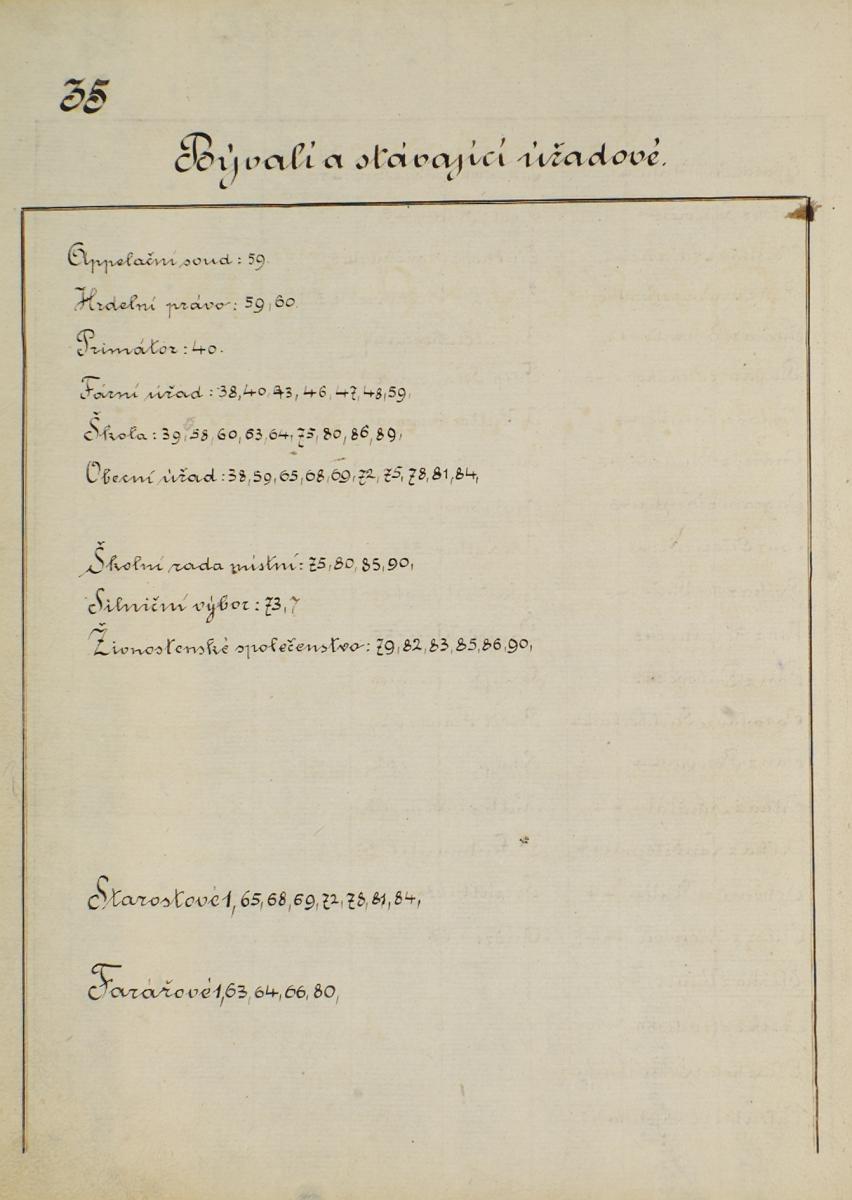 35
Bývalí a stávající úřadové.
Appelační soud : 59.
Hrdelní právo : 59, 60.
Primátor : 40.
Farní úřad : 38, 40, 43, 46, 47, 48, 59,
Škola : 39, 58, 60, 63, 64, 75, 80, 86, 89,
Obecní úřad : 38, 59, 65, 68, 69, 72, 75, 78, 81, 84,
Školní rada místní : 75, 80, 85, 90,
Silniční výbor : 73, 7
Živnostenské společenstvo : 79, 82, 83, 85, 86, 90,
Starostové 1, 65, 68, 69, 72, 78, 81, 84,
Farářové 1, 63, 64, 66, 80,